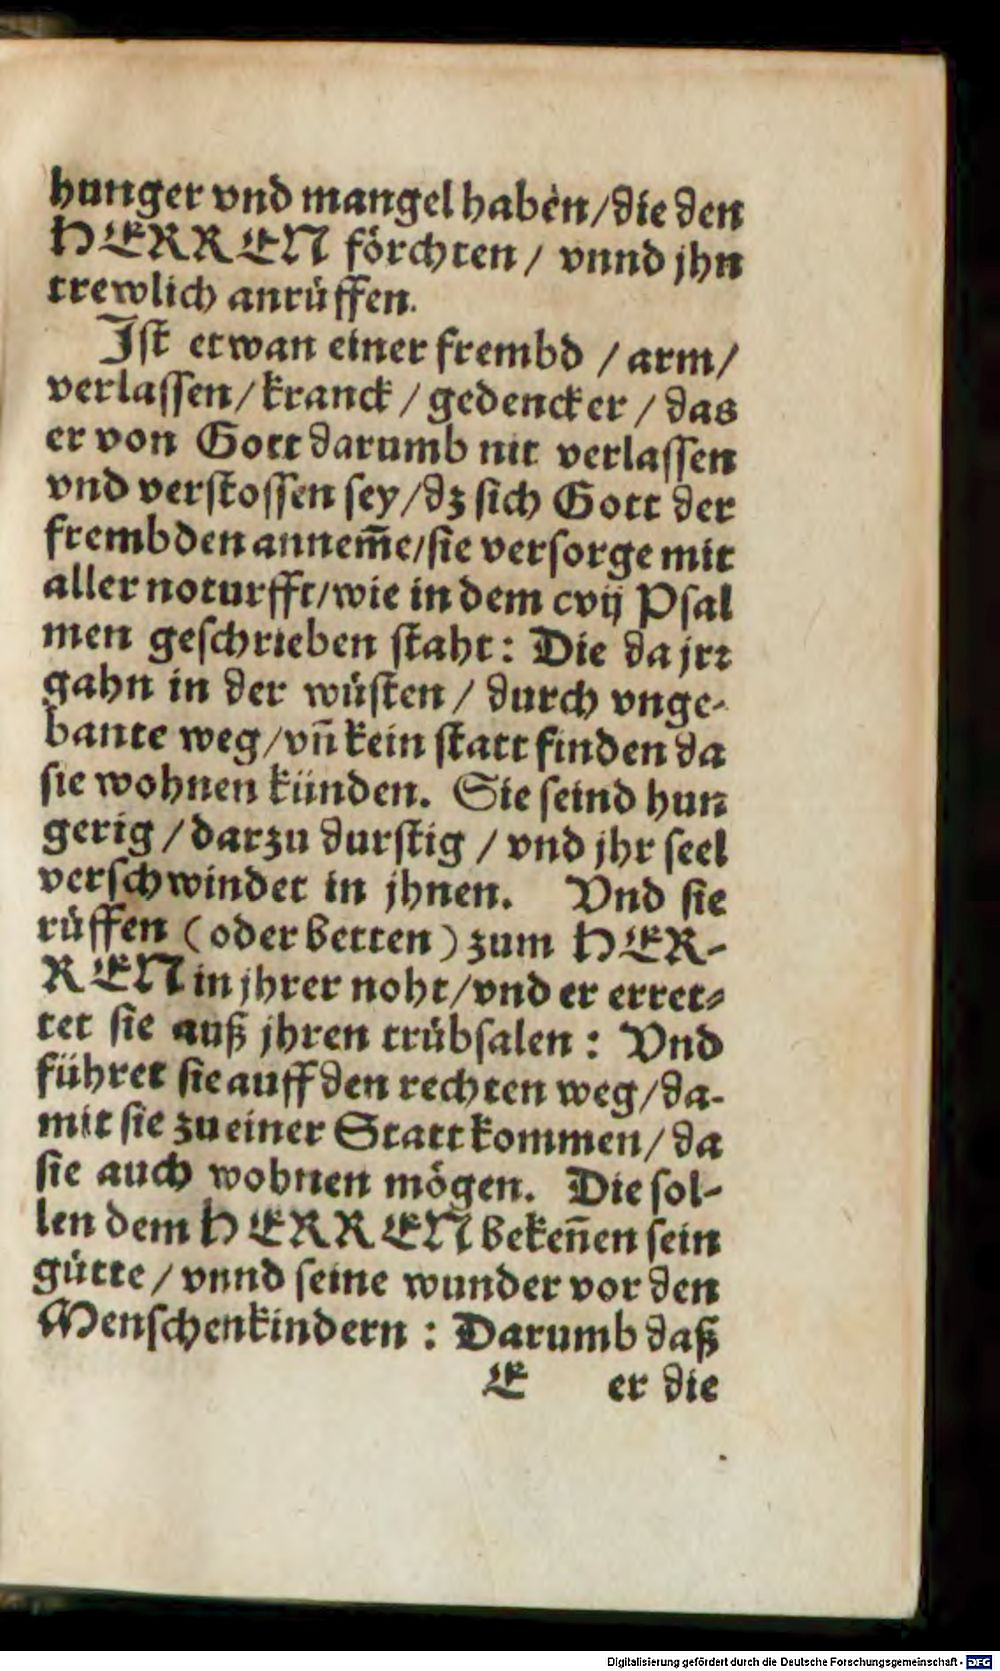 hunger vnd mangel haben/die den
HERREN förchten / vnnd jhn
trewlich anrüffen.
Ist etwan einer frembd / arm/
verlassen/kranck / gedenck er / das
er von Gott darumb nit verlassen
vnd verstossen sey/dz sich Gott der
frembden annem̃e/sie versorge mit
aller noturfft/wie in dem cvij Psal
men geschrieben staht: Die da jrꝛ
gahn in der wüsten / durch vnge-
bante weg/vñ kein statt finden da
sie wohnen künden. Sie seind hun
gerig / darzu durstig / vnd jhr seel
verschwindet in jhnen. Vnd sie
rüffen (oder betten) zum HER-
REN in jhrer noht/vnd er erret-
tet sie auß jhren trübsalen: Vnd
führet sie auff den rechten weg/da-
mit sie zu einer Statt kommen/da
sie auch wohnen mögen. Die sol-
len dem HERREN bekeñen sein
gütte / vnnd seine wunder vor den
Menschenkindern: Darumb daß
E er die
Digitalisierung gefördert durch die Deutsche Forschungsgemeinschaft - DFG